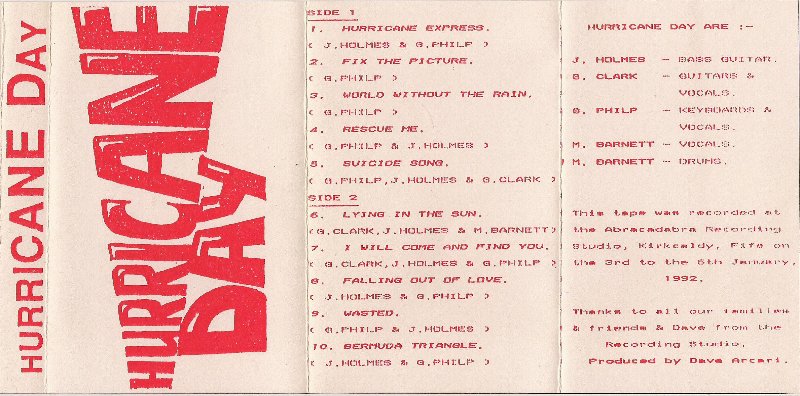 HURRICANE DAY
HURRICANE
DAY
SIDE 1
1. HURRICANE EXPRESS.
( J.HOLMES & G.PHILP )
2. FIX THE PICTURE.
( G.PHILP )
3. WORLD WITHOUT THE RAIN.
( G.PHILP )
4. RESCUE ME.
( G.PHILP & J.HOLMES )
5. SUICIDE SONG.
( G.PHILP,J.HOLMES & G.CLARK )
SIDE 2
6. LYING IN THE SUN.
(G.CLARK,J.HOLMES & M.BARNETT)
7. I WILL COME AND FIND YOU.
( G.CLARK,J.HOLMES & G.PHILP )
8. FALLING OUT OF LOVE.
( J.HOLMES & G.PHILP )
9. WASTED.
( G.PHILP & J.HOLMES )
10. BERMUDA TRIANGLE.
( J.HOLMES & G.PHILP )
HURRICANE DAY ARE :-
J. HOLMES - BASS GUITAR.
G. CLARK - GUITARS &
VOCALS.
G. PHILP - KEYBOARDS &
VOCALS.
M. BARNETT - VOCALS.
M. BARNETT - DRUMS.
This tape was recorded at
the Abracadabra Recording
Studio, Kirkcaldy, Fife on
the 3rd to the 5th January,
1992.
Thanks to all our families
& friends & Dave from the
Recording Studio.
Produced by Dave Arcari.